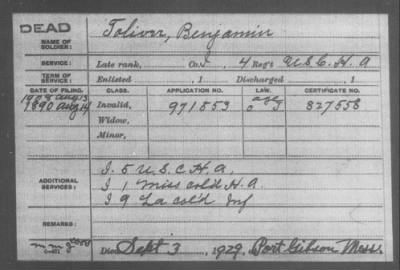 DEAD
NAME OF SOLDIER: Toliver, Benjamin
SERVICE: Late rank, Co. I, 4 Reg't U.S.C.H.A
TERM OF SERVICE: Enlisted , 1 Discharged , 1
DATE OF FILING. CLASS. APPLICATION NO. LAW. CERTIFICATE NO.
1908 Aug 13
1890 Aug 14 Invalid, 971853 827558
Widow,
Minor,
ADDITIONAL SERVICES:
I. 5 U.S.C.H.A.
I 1 Miss col'd H.A.
I 9 La col'd Inf
REMARKS:
Died Sept 3, 1929, Port Gibson Miss.